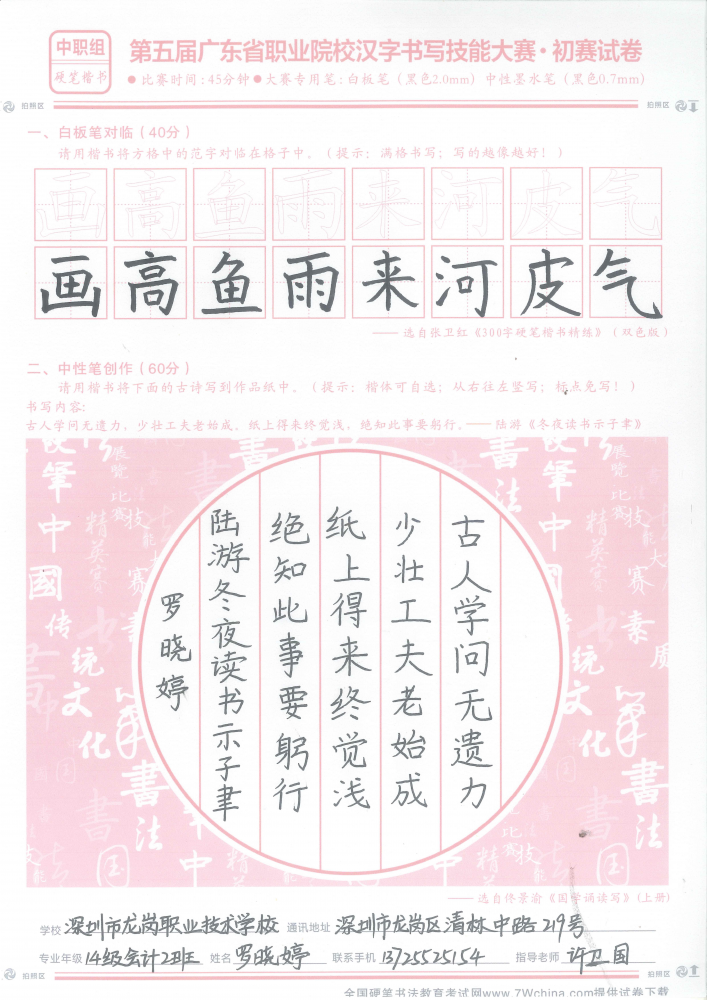 中职组
硬笔楷书
第五届广东省职业院校汉字书写技能大赛·初赛试卷
●比赛时间:45分钟●大赛专用笔:白板笔(黑色2.0mm)中性墨水笔(黑色0.7mm)
拍照区
拍照区
一、白板笔对临(40分)
请用楷书将方格中的范字对临在格子中。(提示:满格书写;写的越像越好!)
画高鱼雨来河皮气
画高鱼雨来河皮气
——选自张卫红《300字硬笔楷书精练》(双色版)
二、中性笔创作(60分)
请用楷书将下面的古诗写到作品纸中。(提示:楷体可自选;从右往左竖写;标点免写!)
书写内容:
古人学问无遗力,少壮工夫老始成。纸上得来终觉浅,绝知此事要躬行。——陆游《冬夜读书示子聿》
古人学问无遗力
少壮工夫老始成
纸上得来终觉浅
绝知此事要躬行
陆游冬夜读书示子聿
罗晓婷
——选自佟景渝《国学诵读写》(上册)
学校 深圳市龙岗职业技术学校 通讯地址 深圳市龙岗区清林中路219号
专业年级 14级会计2班 姓名 罗晓婷 联系手机 13725525154 指导老师 许卫国
拍照区
拍照区
全国硬笔书法教育考试网www.7Wchina.com提供试卷下载